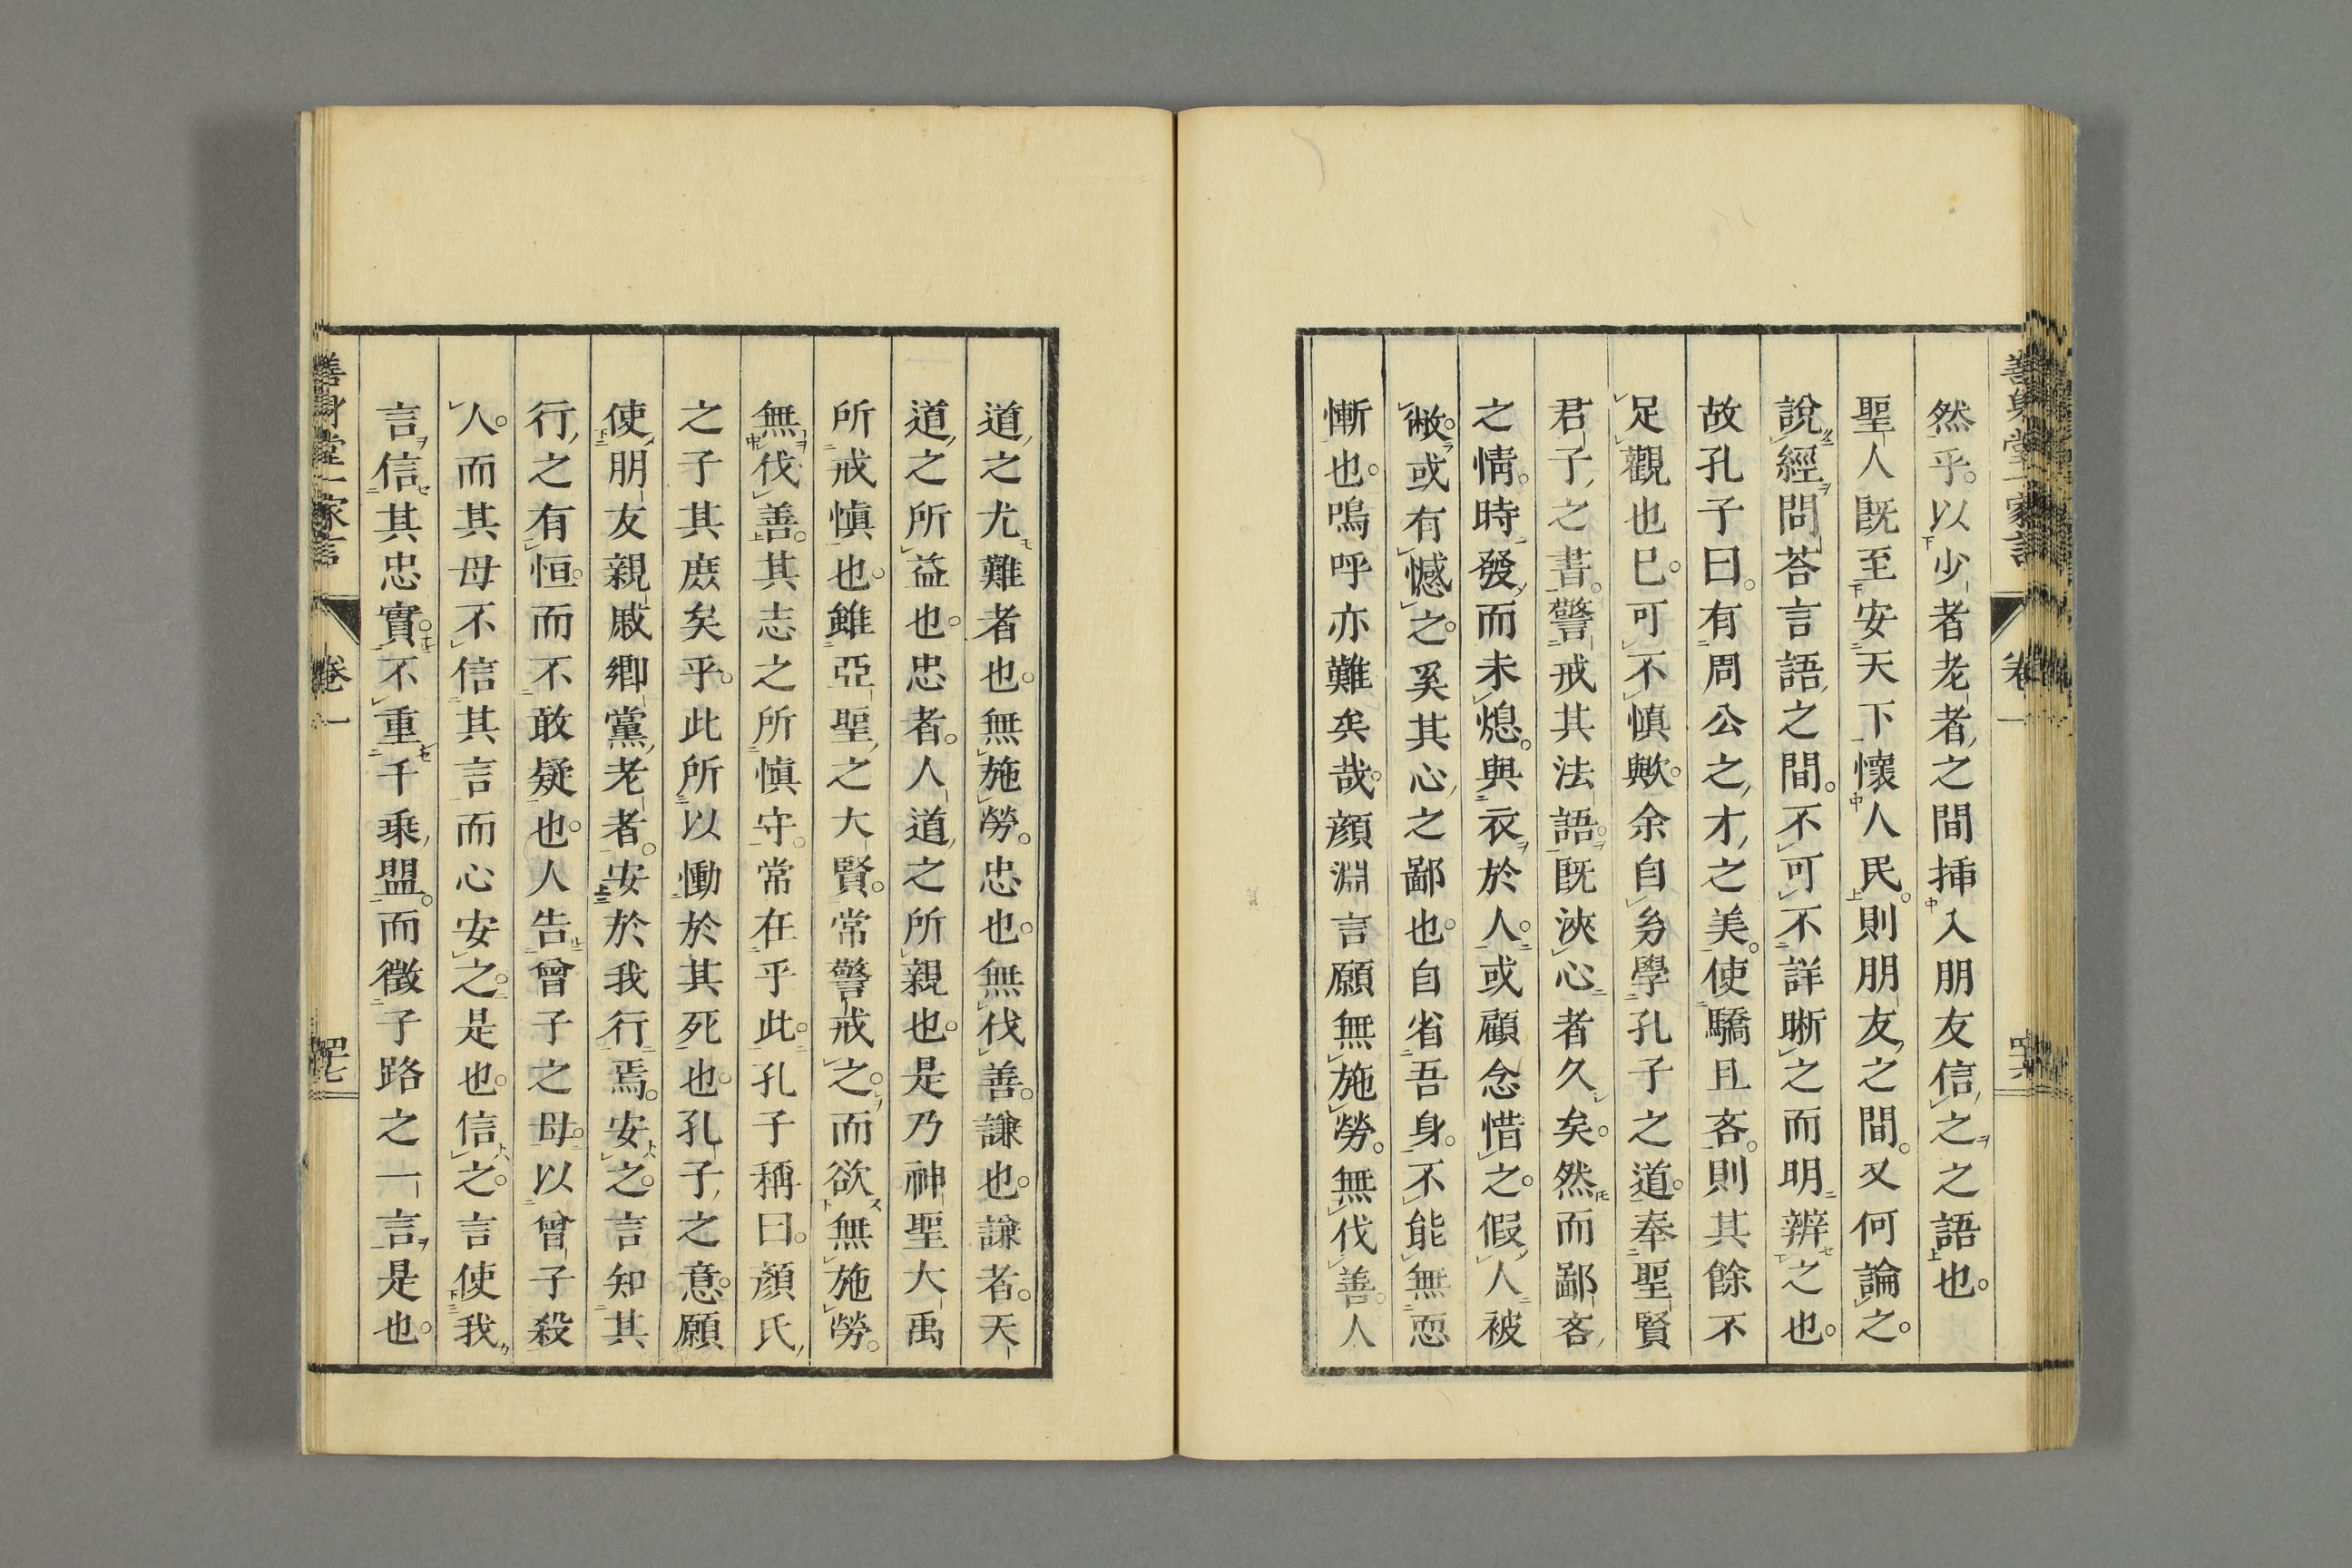 善身堂一家言 卷一 四十六
然乎。以少者老者之間挿入朋友信之之語也。
聖人既至安天下懷人民。則朋友之間。又何論之。
說經問荅言語之間。不可不詳晰之而明辨之也。
故孔子曰。有周公之才之美。使驕且吝。則其餘不
足觀也已。可不慎歟。余自幼學孔子之道。奉聖賢
君子之書。警戒其法語。既浹心者久矣。然而鄙吝
之情。時發而未熄。與衣於人。或顧念惜之。假人被
敝。或有憾之。奚其心之鄙也。自省吾身。不能無恧
慚也。嗚呼亦難矣哉。顔淵言願無施勞。無伐善。人
道之尤難者也。無施勞。忠也。無伐善。謙也。謙者。天
道之所益也。忠者。人道之所親也。是乃神聖大禹
所戒慎也。雖亞聖之大賢。常警戒之。而欲無施勞。
無伐善。其志之所慎守。常在乎此。孔子稱曰。顔氏
之子其庶矣乎。此所以慟於其死也。孔子之意。願
使朋友親戚鄉黨老者。安於我行焉。安之。言知其
行之有恒。而不敢疑也。人告曾子之母。以曾子殺
人。而其母不信其言而心安之。是也。信之。言使我
言信其忠實。不重千乘盟。而徵子路之一言。是也。
善身堂一家言 卷一 四十七